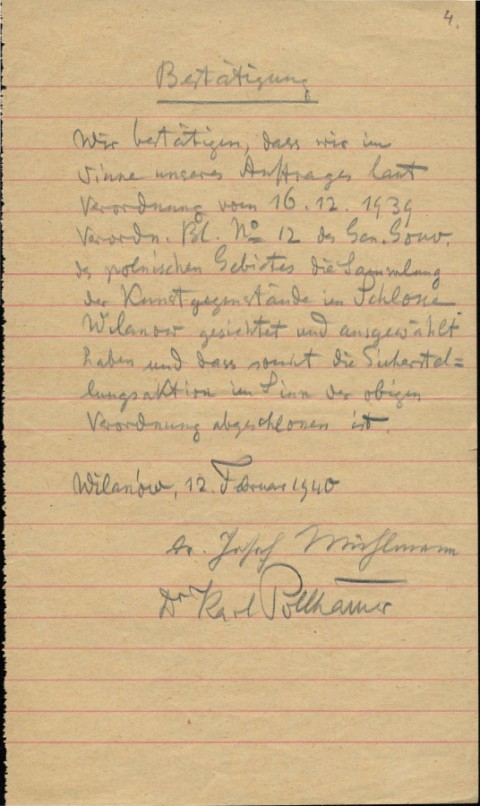 4.
Bestätigung
Wir bestätigen, dass wir im
Sinne unseres Auftrages laut
Verordnung vom 16.12.1939
Verordn. Bl. No 12 des Gen. Gouv.
des polnischen Gebietes die Sammlung
der Kunstgegenstände im Schlosse
Wilanow gesichtet und ausgewählt
haben und dass somit die Sicherstel=
lungsaktion im Sinn der obigen
Verordnung abgeschlossen ist.
Wilanów, 12. Februar 1940
Dr. Josef Mühlmann
Dr Karl Pollhamer